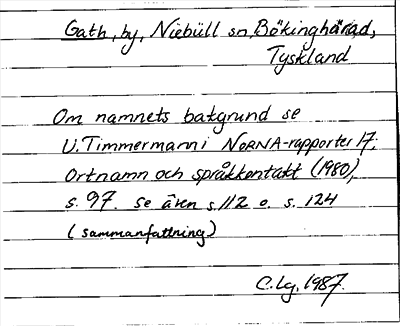 Gath, by, Niebüll sn, Bökinghärad,
Tyskland
Om namnets bakgrund se
U. Timmermann i NORNA-rapporter 17;
Ortnamn och språkkontakt (1980),
s. 97. se även s. 112 o. s. 124
(sammanfattning)
C. Lg. 1987.